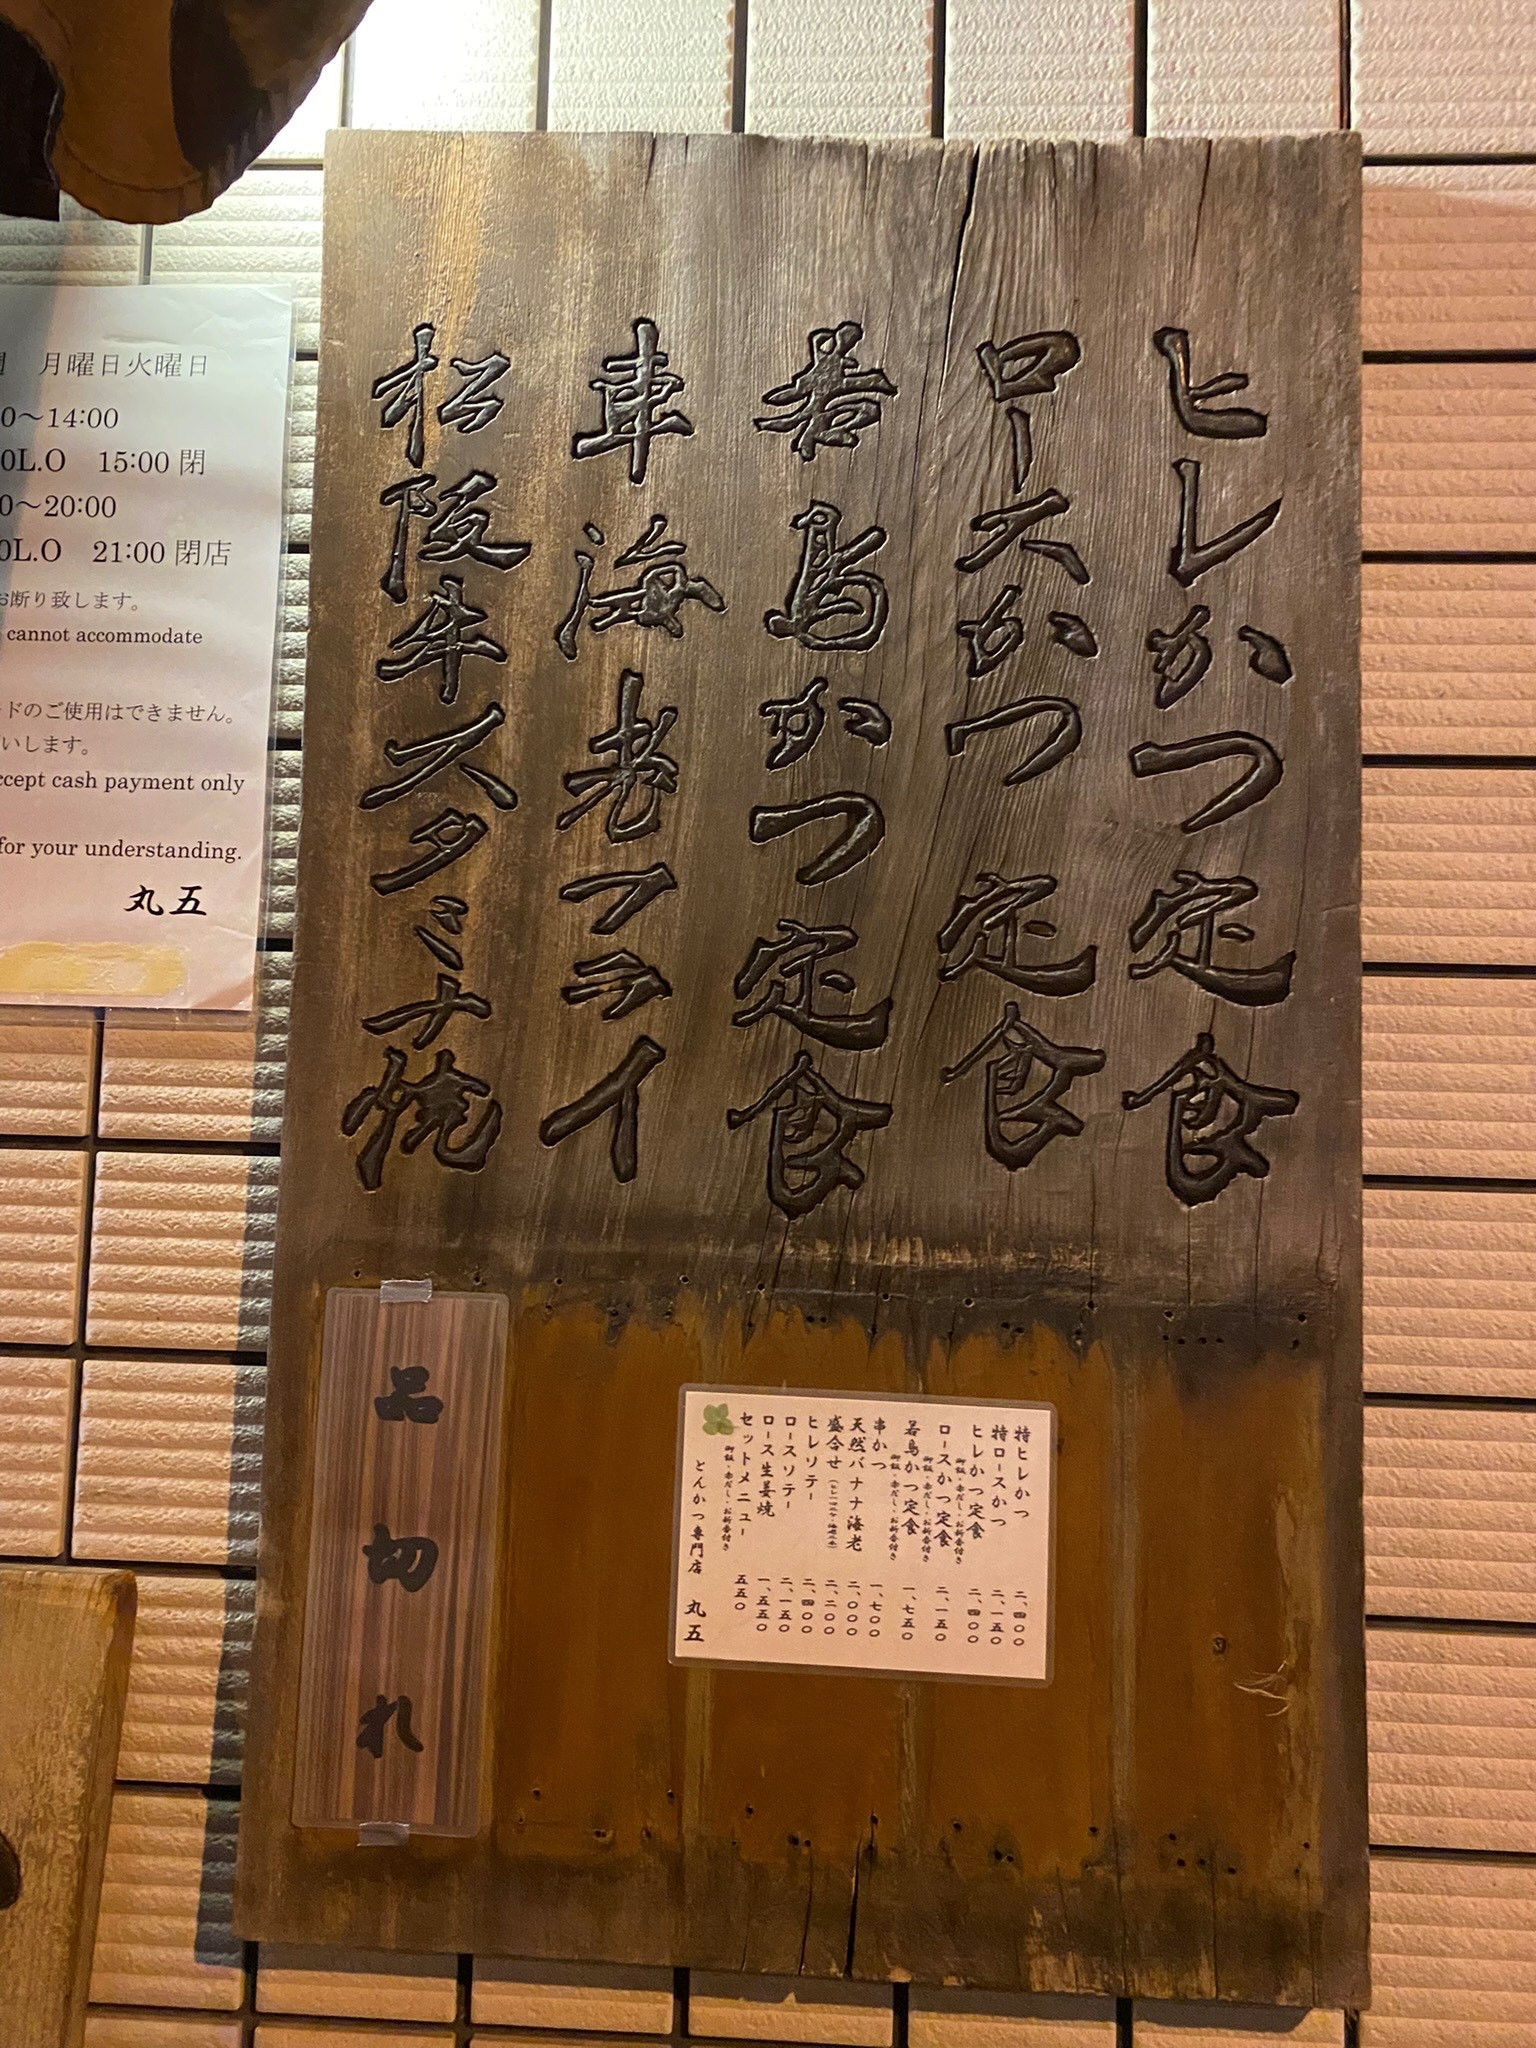 ヒレかつ定食
ロースかつ定食
若鳥かつ定食
車海老フライ
松阪牛スタミナ焼
品切れ
特ヒレかつ 二、四〇〇
特ロースかつ 二、一五〇
ヒレかつ定食 二、四〇〇
御飯・赤だし・お新香付き
ロースかつ定食 二、一五〇
御飯・赤だし・お新香付き
若鳥かつ定食 一、七五〇
御飯・赤だし・お新香付き
串かつ 一、七〇〇
天然バナナ海老 二、〇〇〇
盛合せ 二、二〇〇
ヒレソテー 二、四〇〇
ロースソテー 二、一五〇
ロース生姜焼 一、五五〇
セットメニュー 五五〇
御飯・赤だし・お新香付き
とんかつ専門店 丸五
月曜日火曜日
0〜14:00
0L.O 15:00 閉
0〜20:00
0L.O 21:00 閉店
お断り致します。
cannot accommodate
ードのご使用はできません。
いします。
ccept cash payment only
for your understanding.
丸五